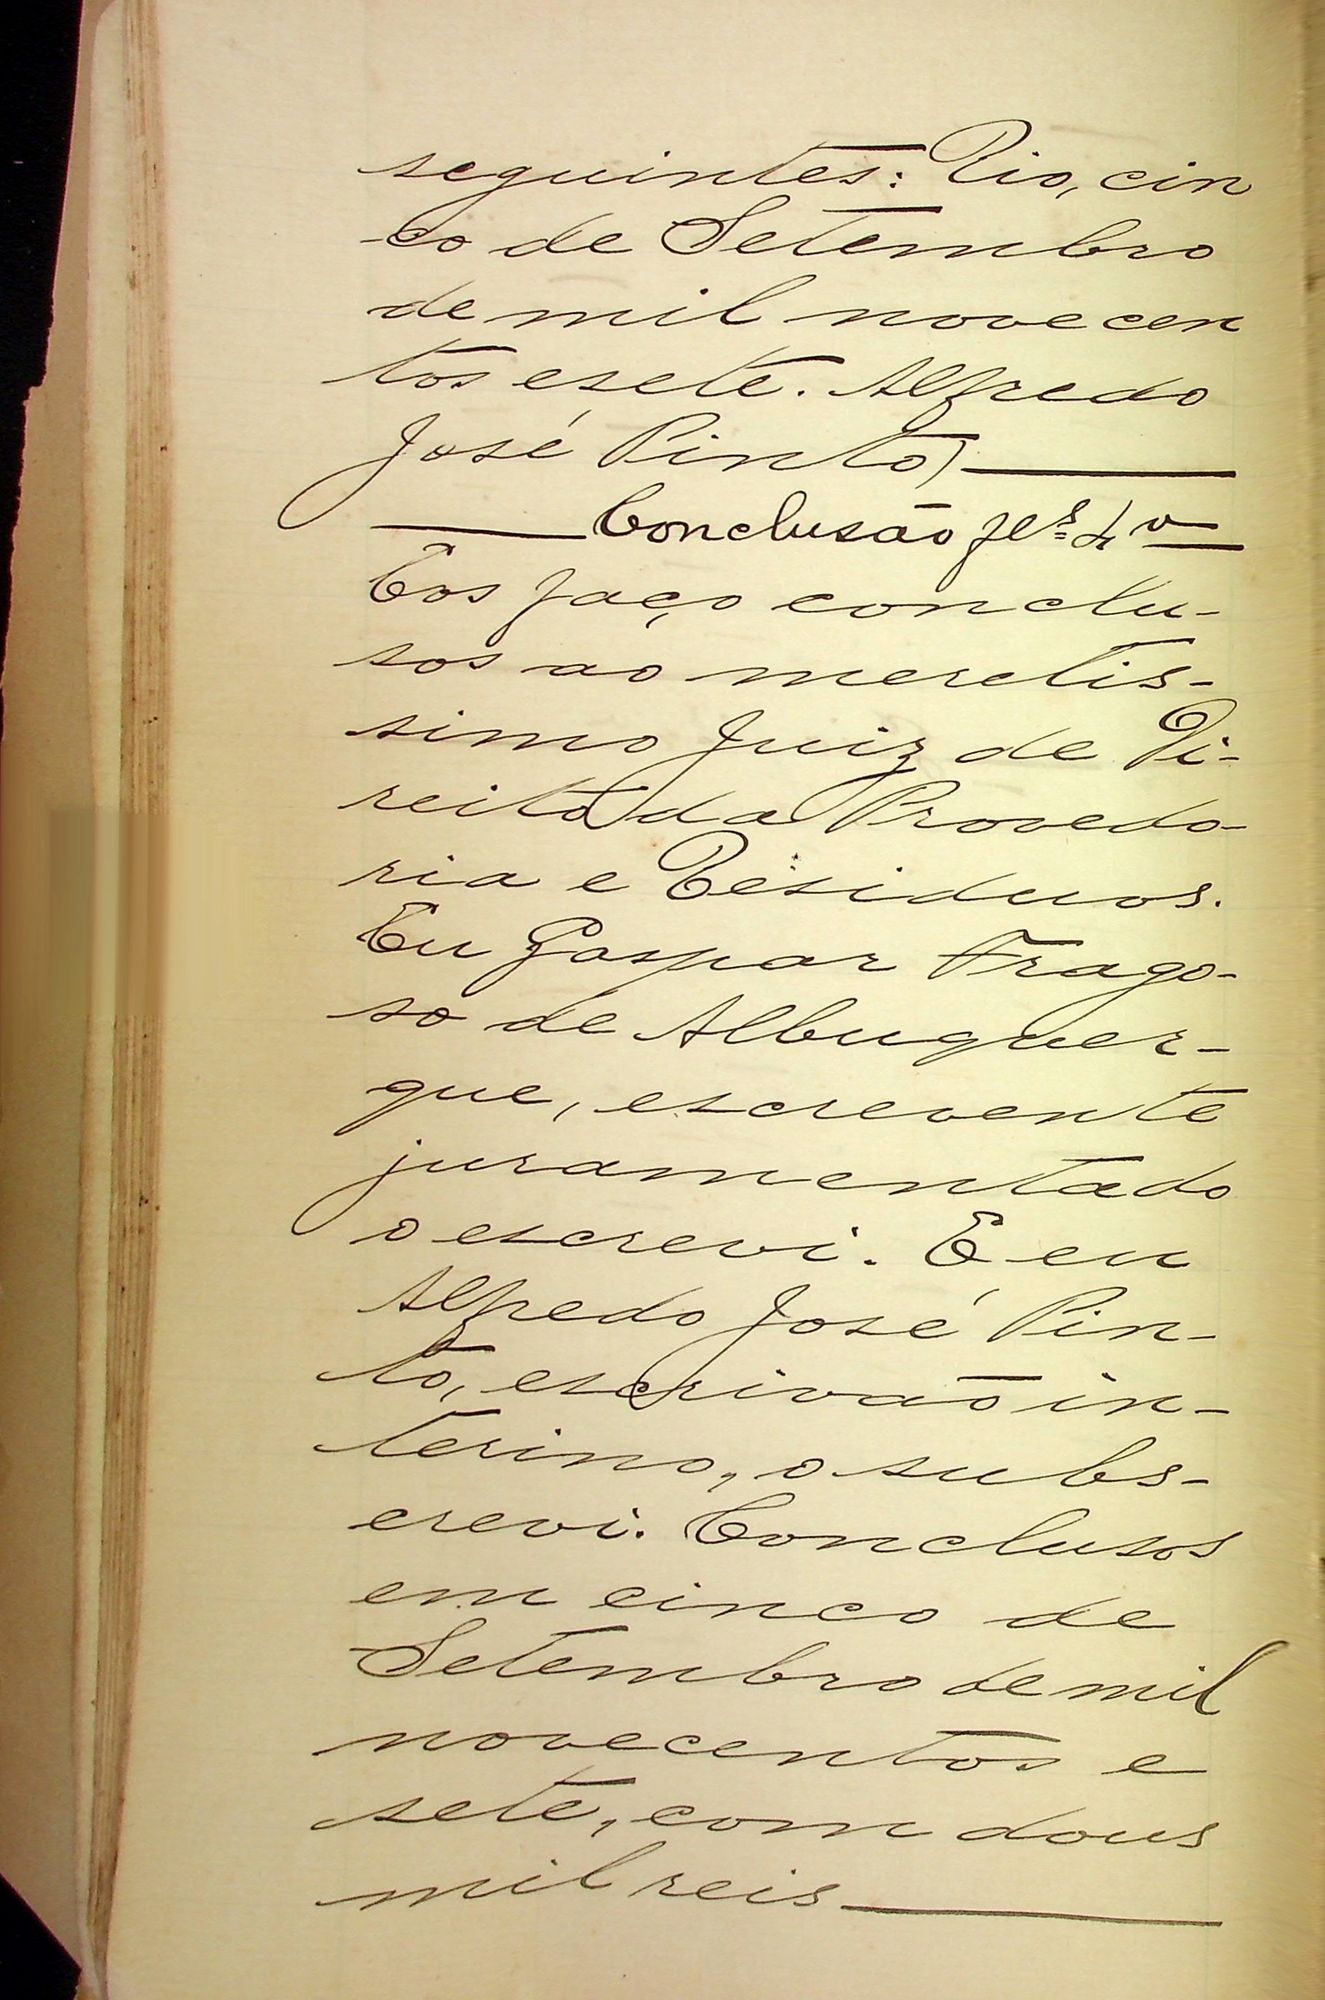 seguintes: Rio, cin
co de Setembro
de mil novecen
tos e sete. Alfredo
José Pinto)
Conclusão fls 4 v
E os faço conclu-
sos ao meretis-
simo Juiz de Di-
reito da Provedo-
ria e Residuos.
Eu Gaspar Frago-
so de Albuquer-
que, escrevente
juramentado
o escrevi. E eu
Alfredo José Pin-
to, escrivão in-
terino, o subs-
crevi. Conclusos
em cinco de
Setembro de mil
novecentos e
sete, com dous
mil reis